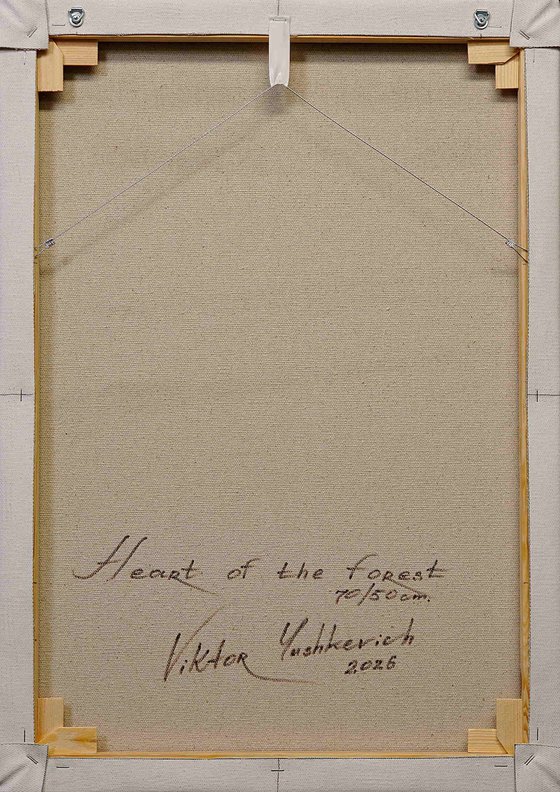 Heart of the forest
70/50 cm.
Viktor Yushkevich
2026